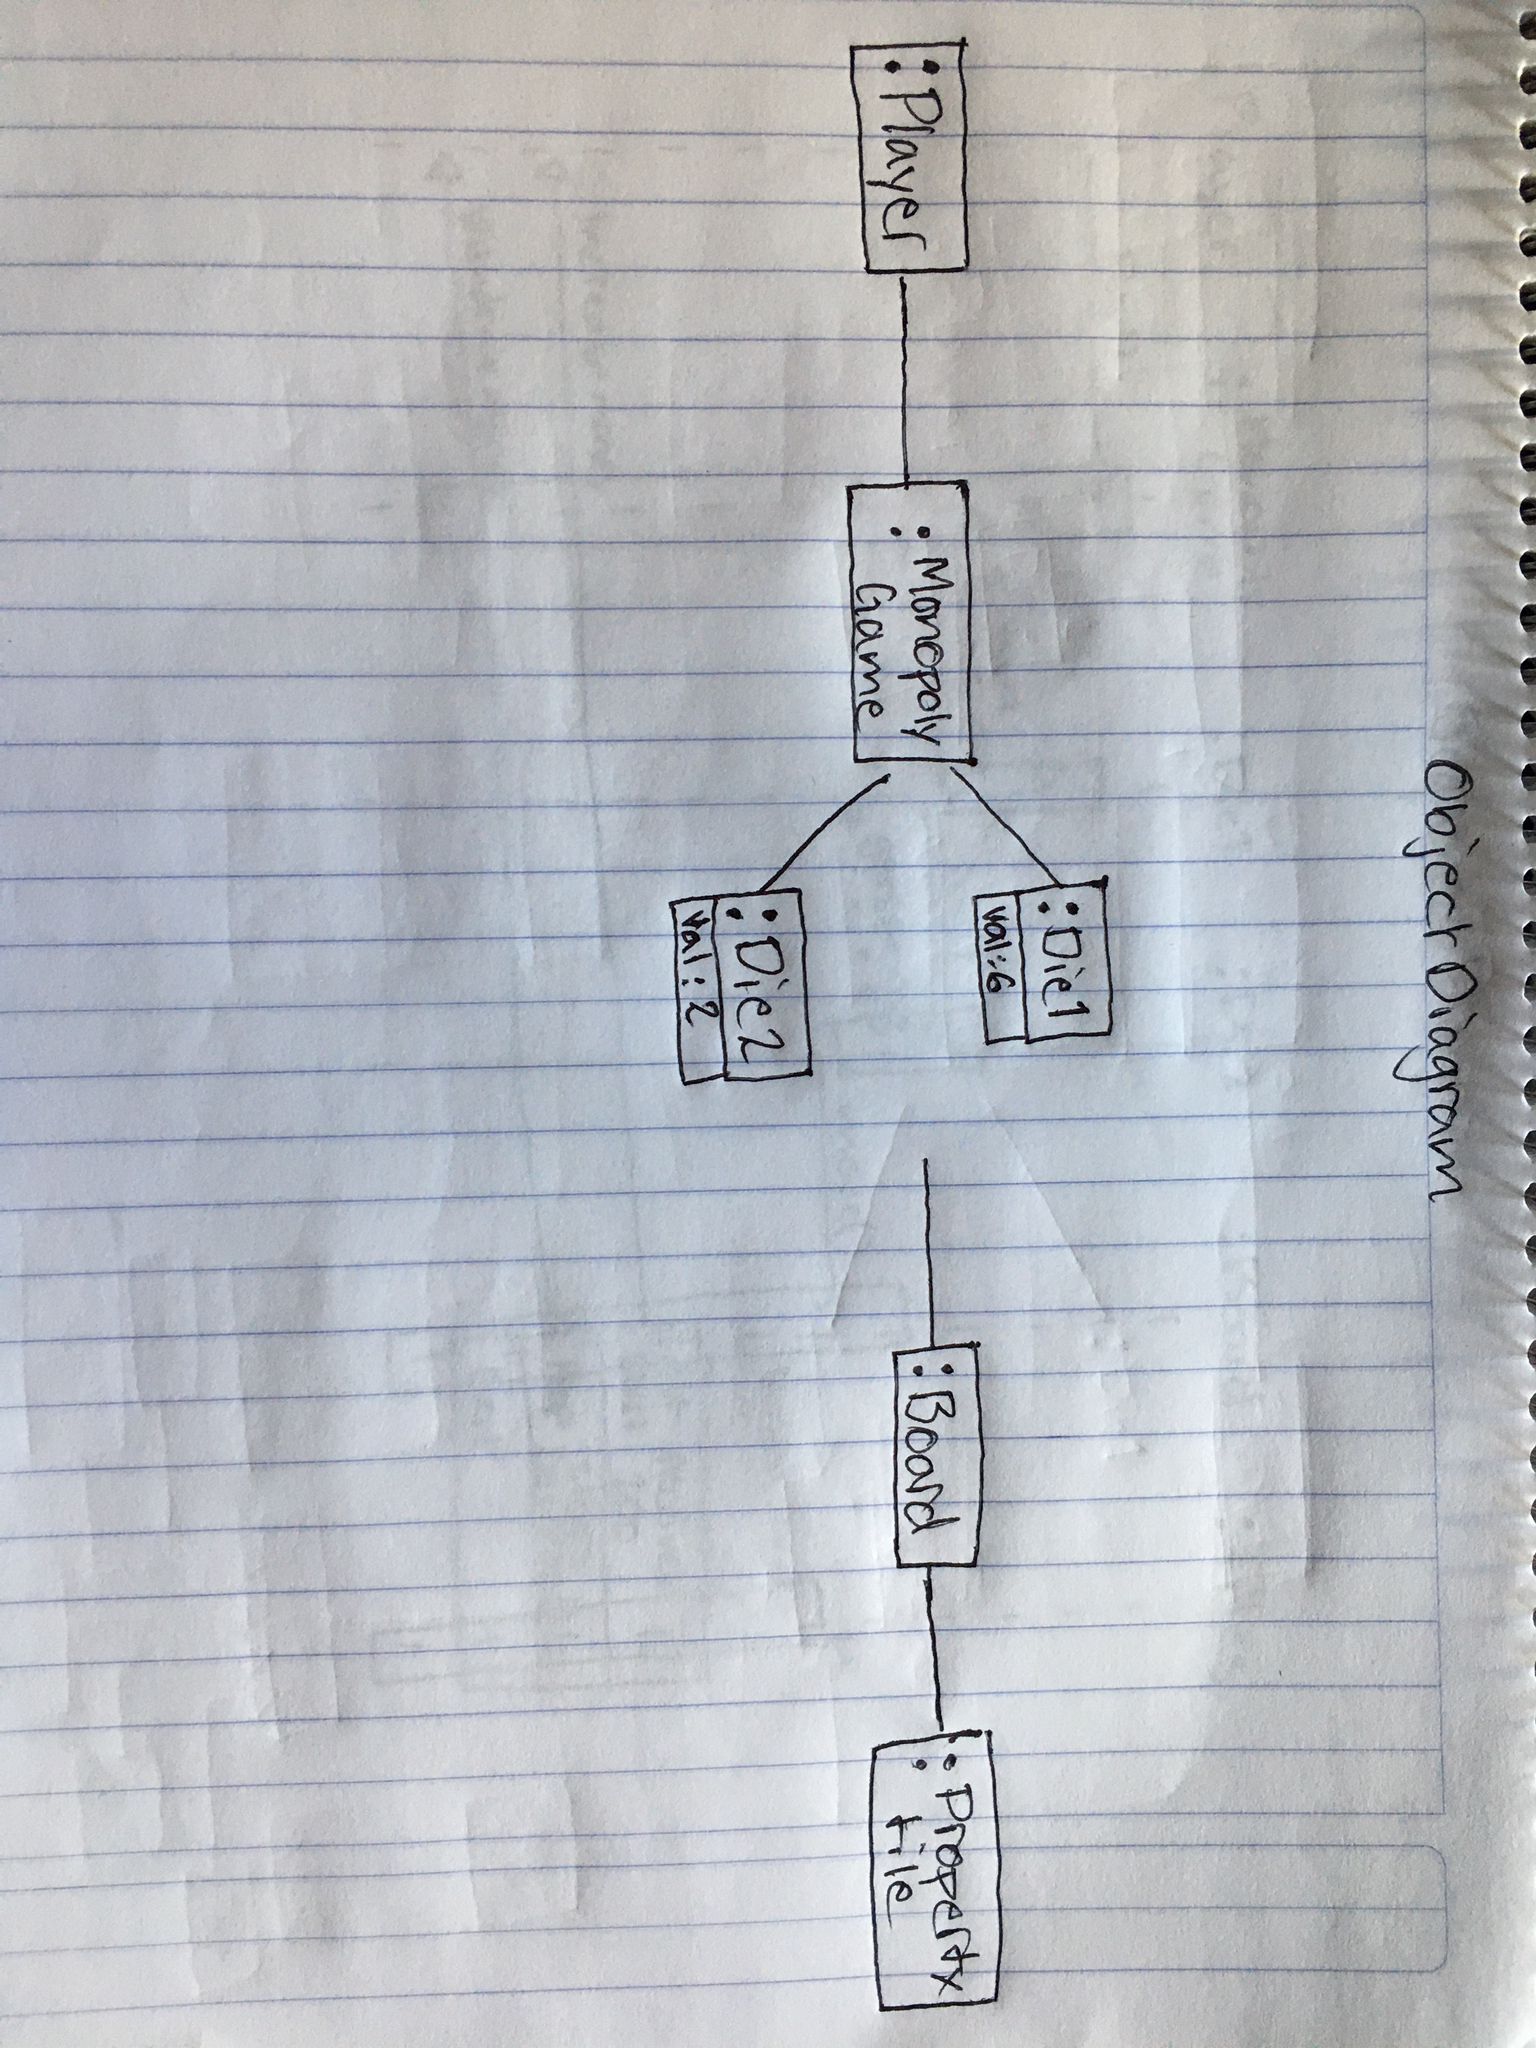 Object Diagram
:Player
:Monopoly
Game
:Die1
val:6
:Die2
val:2
:Board
:Property
File